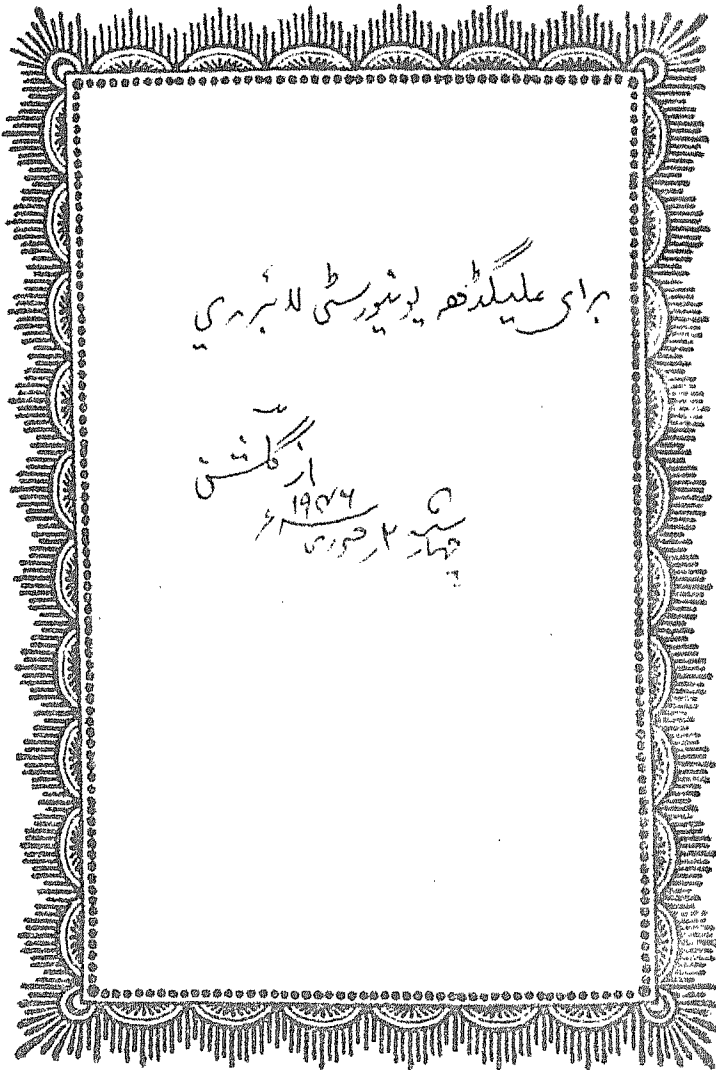 برای علیگڈھ یونیورسٹی لائبریری
از گلشن
چہار شنبہ ۲ فروری ۱۹۴۶ء